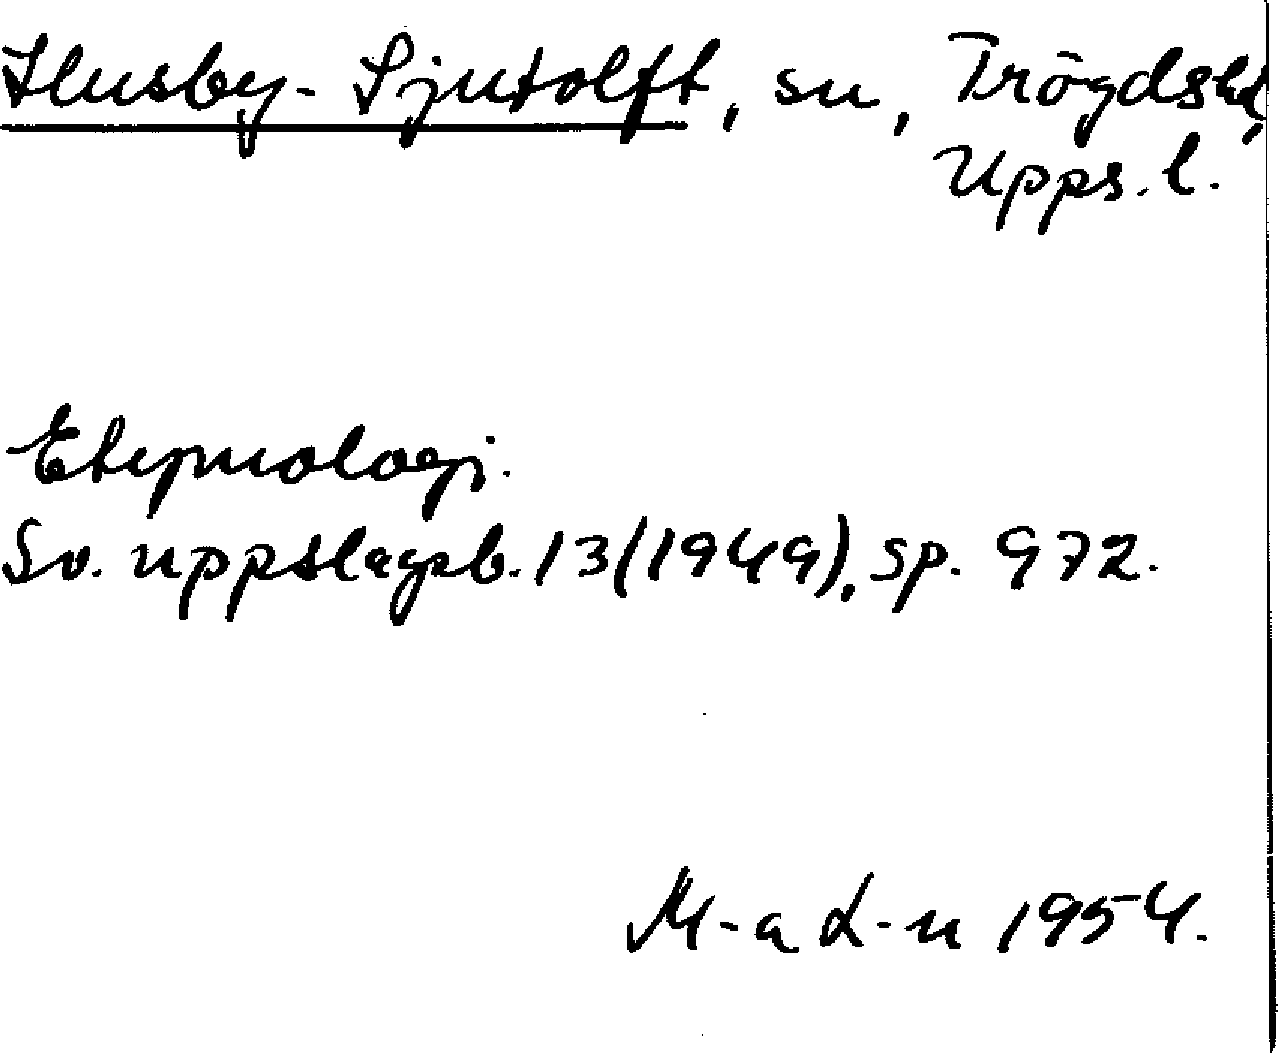 Husby-Sjutolft, sn, Trögds hd,
Upps. l.
Etymologi.
Sv. uppslagsb. 13 (1949), sp. 972.
M-a L-n 1954.